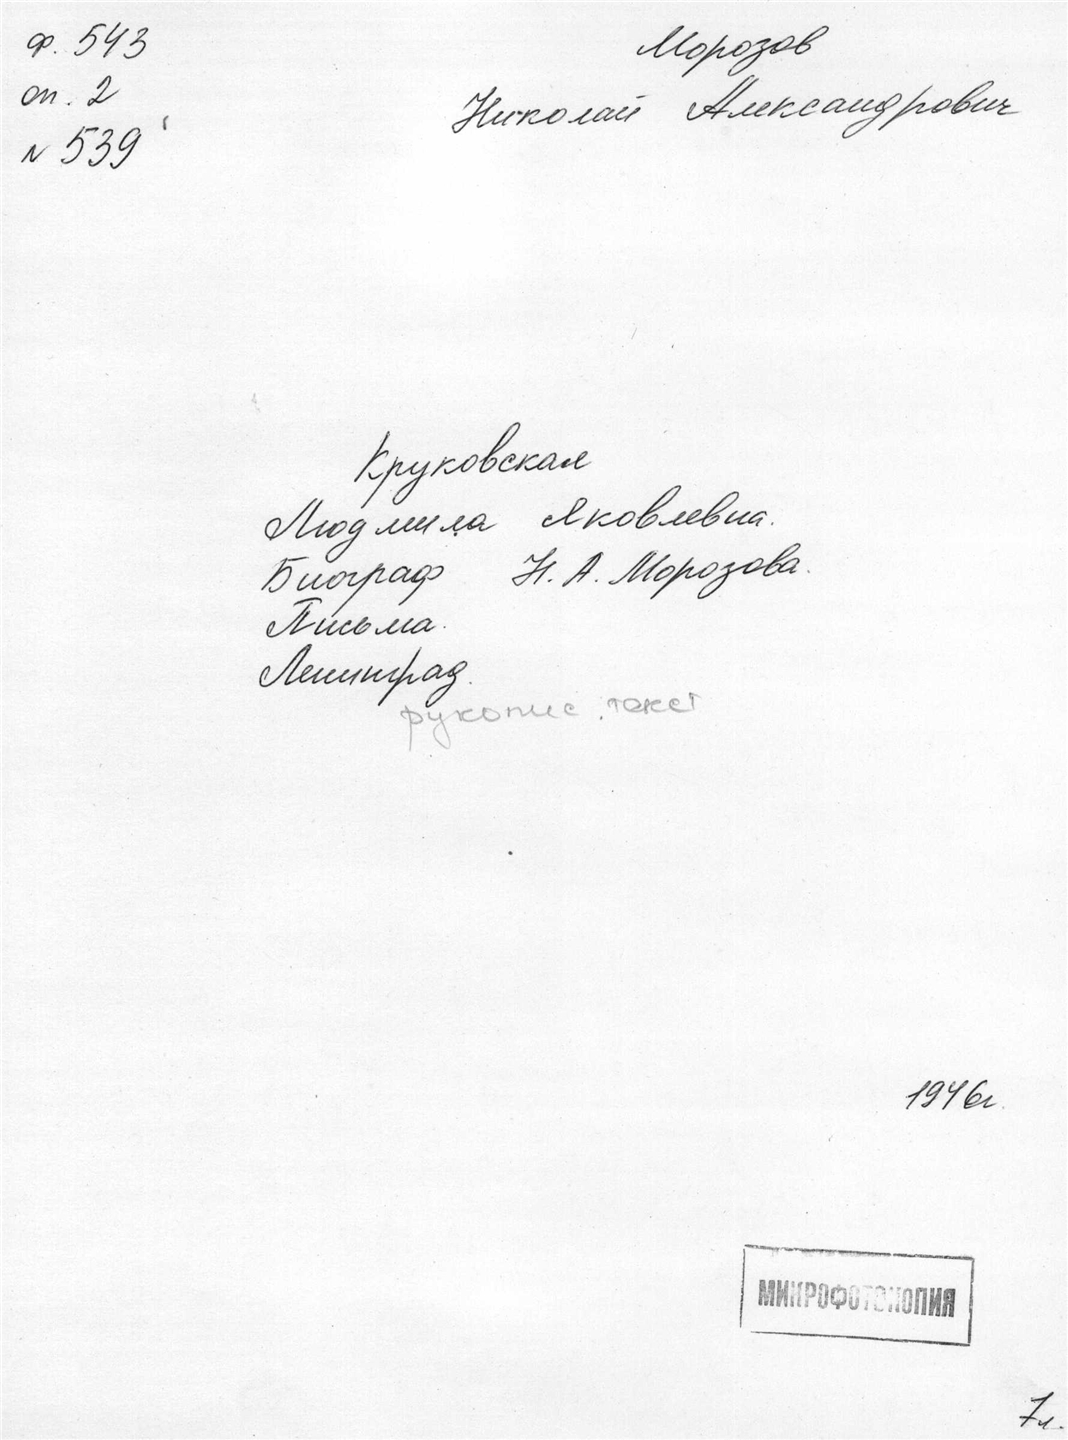 ф. 543
оп. 2
N 539
Морозов
Николай Александрович
Круковская
Людмила Яковлевна.
Биограф Н. А. Морозова.
Письма.
Ленинград.
рукопис. текст
1946г.
МИКРОФОТОКОПИЯ
7л.